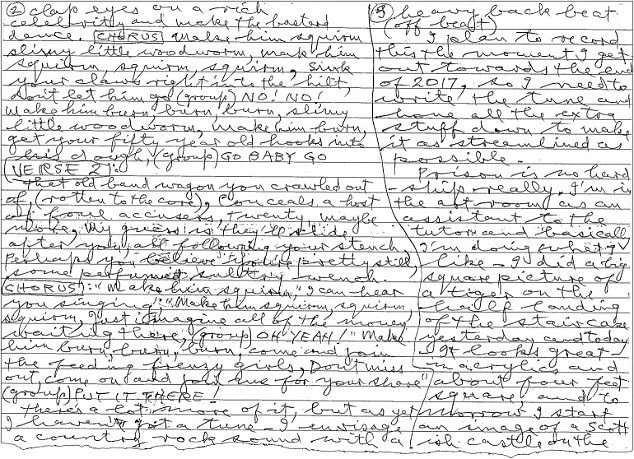 ② clap eyes on a rich
celebrity and make the bastard
dance. CHORUS make him squirm
slimy little woodworm, make him
squirm squirm, squirm, sink
your claws right into the hilt,
don't let him go (group) NO! NO!
make him burn, burn, burn, slimy
little woodworm, make him burn,
get your fifty year old hooks into
his dough, (group) GO BABY GO
(VERSE 2):
That old band wagon you crawled out
of, (rotten to the core), conceals a host
of foul accusers, twenty, maybe
more, My guess is they'll slide
after you, all following your stench
Perhaps you believe you're pretty still,
some perfumed sultry wench.
CHORUS: "Make him squirm," I can hear
you singing: "Make him squirm, squirm,
squirm, Just imagine all of the money
waiting there, (group) OH YEAH! "Make
him burn, burn, burn, come and join
the feeding frenzy girls, Don't miss
out, come on (and join me for your share"
(group) PUT IT THERE -
There's a lot more of it, but as yet
I haven't got a tune - I envisage
a country rock sound with a
③ heavy back beat
(off beat)
I plan to record
this the moment I get
out towards the end
of 2017, so I need to
write the tune and
have all the extra
stuff down to make
it as streamlined as
possible.
Prison is no hard
-ship really, I'm in
the art room as an
assistant to the
tutor and basically
I'm doing what I
like - I did a big
square picture of
a tiger on the
half landing
of the staircase
yesterday and today
It looks great -
in acrylic and
about four feet
square, and to
morrow I start
an image of a Scott
ish castle on the